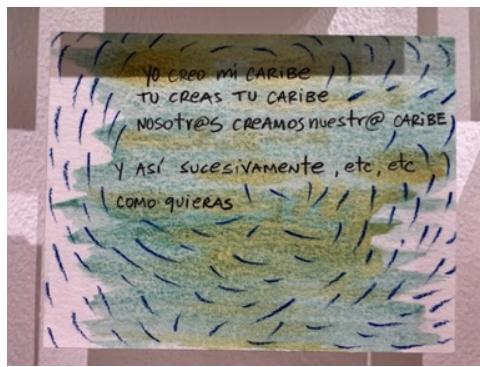 YO CREO mi CARiBE
TU CREAS TU CARiBE
NOSOTr@S CREAMOS nuestr@ CARiBE
Y ASÍ SUCESiVAMENTE, etc, etc
COMO quiERAS